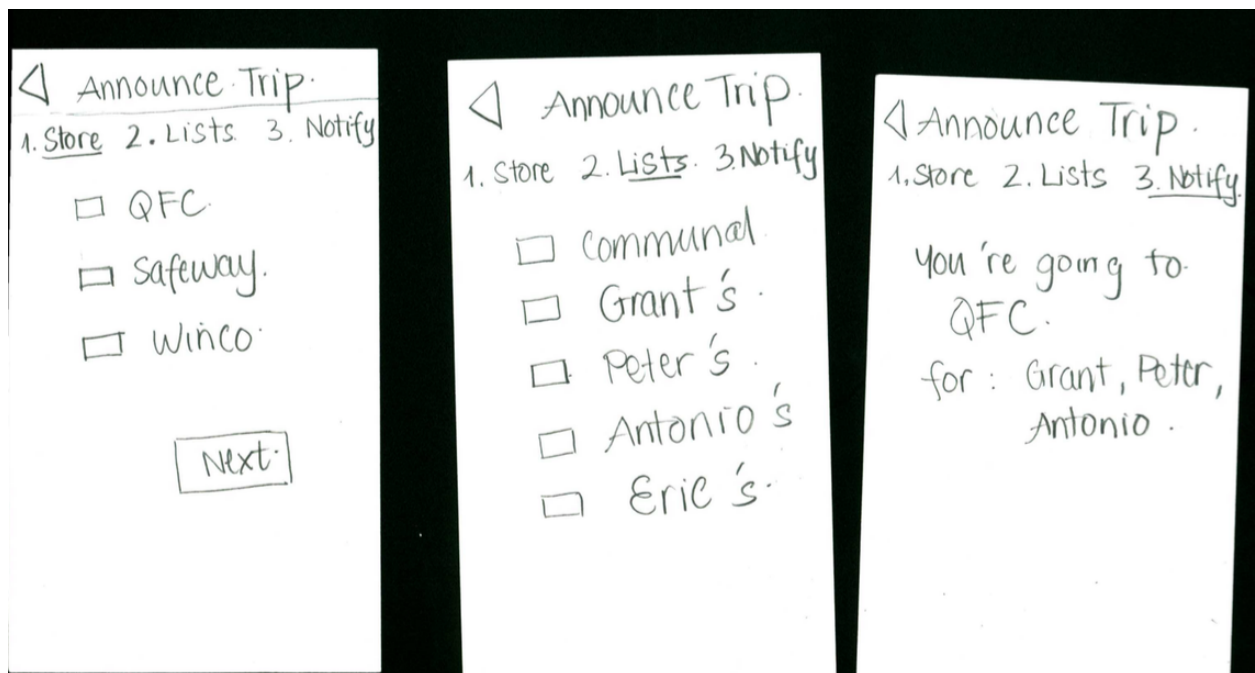 Announce Trip.
1. Store 2. Lists 3. Notify
QFC.
Safeway.
Winco.
Next.
Announce Trip.
1. Store 2. Lists. 3. Notify
Communal
Grant's.
Peter's.
Antonio's
Eric's.
Announce Trip.
1. Store 2. Lists 3. Notify.
You're going to
QFC.
for: Grant, Peter,
Antonio.